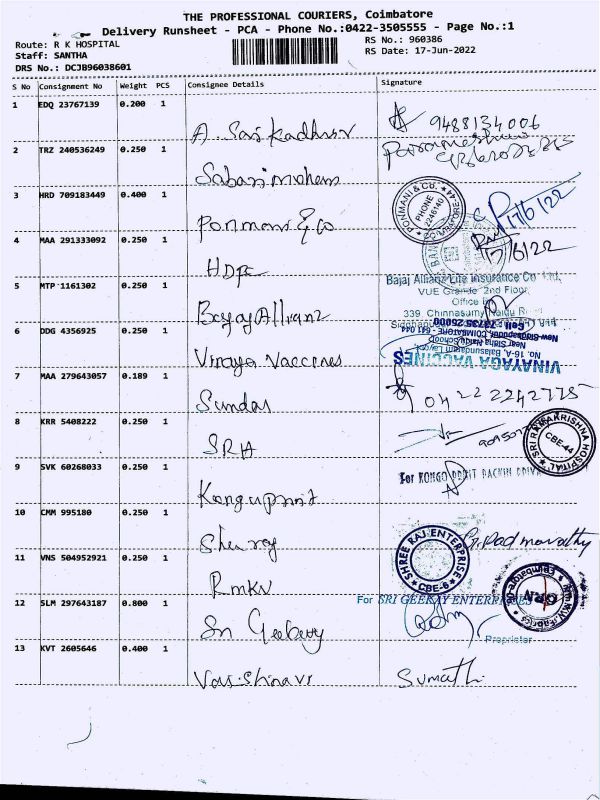 THE PROFESSIONAL COURIERS, Coimbatore
Delivery Runsheet - PCA - Phone No.:0422-3505555 - Page No.:1
Route: R K HOSPITAL
RS No.: 960386
Staff: SANTHA
RS Date: 17-Jun-2022
DRS No.: DCJB96038601
S No Consignment No Weight PCS Consignee Details Signature
1 EDQ 23767139 0.200 1
A. Sasikadhar 9488134006
2 TRZ 240536249 0.250 1
Sabarimohem
3 HRD 709183449 0.400 1
Ponmani & Co
PONMANI & CO.
PHONE
2246140
17/6/22
4 MAA 291333092 0.250 1
HDFC
17/6/22
5 MTP 1161302 0.250 1
Bajaj Allianz
Bajaj Allianz Life Insurance Co. Ltd,
VUE Grande 2nd Floor
Office
339 Chinnasamy Naidu
6 DDG 4356925 0.250 1
Vinaya Vaccines
VINAYAGA VACCINES
No. 16-A, Balasundaram Layout
New Siddhapudur, COIMBATORE - 641 044
Cell : 73735 25000
7 MAA 279643057 0.189 1
Sundar
0422 2242775
8 KRR 5408222 0.250 1
SRH
SRI RAMAKRISHNA HOSPITAL
CBE-44
9 SVK 60268033 0.250 1
Kongu print
For KONGO
10 CMM 995180 0.250 1
Shu raj
SHREE RAJ ENTERPRISE
CBE-6
Padmavathy
11 VNS 504952921 0.250 1
RMKV
GRN
12 SLM 297643187 0.800 1
Sri Geekay
For SRI GEEKAY ENTERPRISES
Proprietor
13 KVT 2605646 0.400 1
Vaishnavi
Sumathi